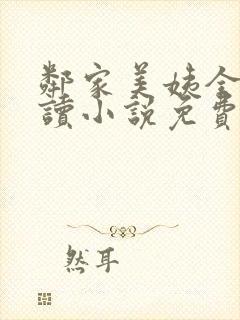 鄰家美姨全
讀小說免費
然耳